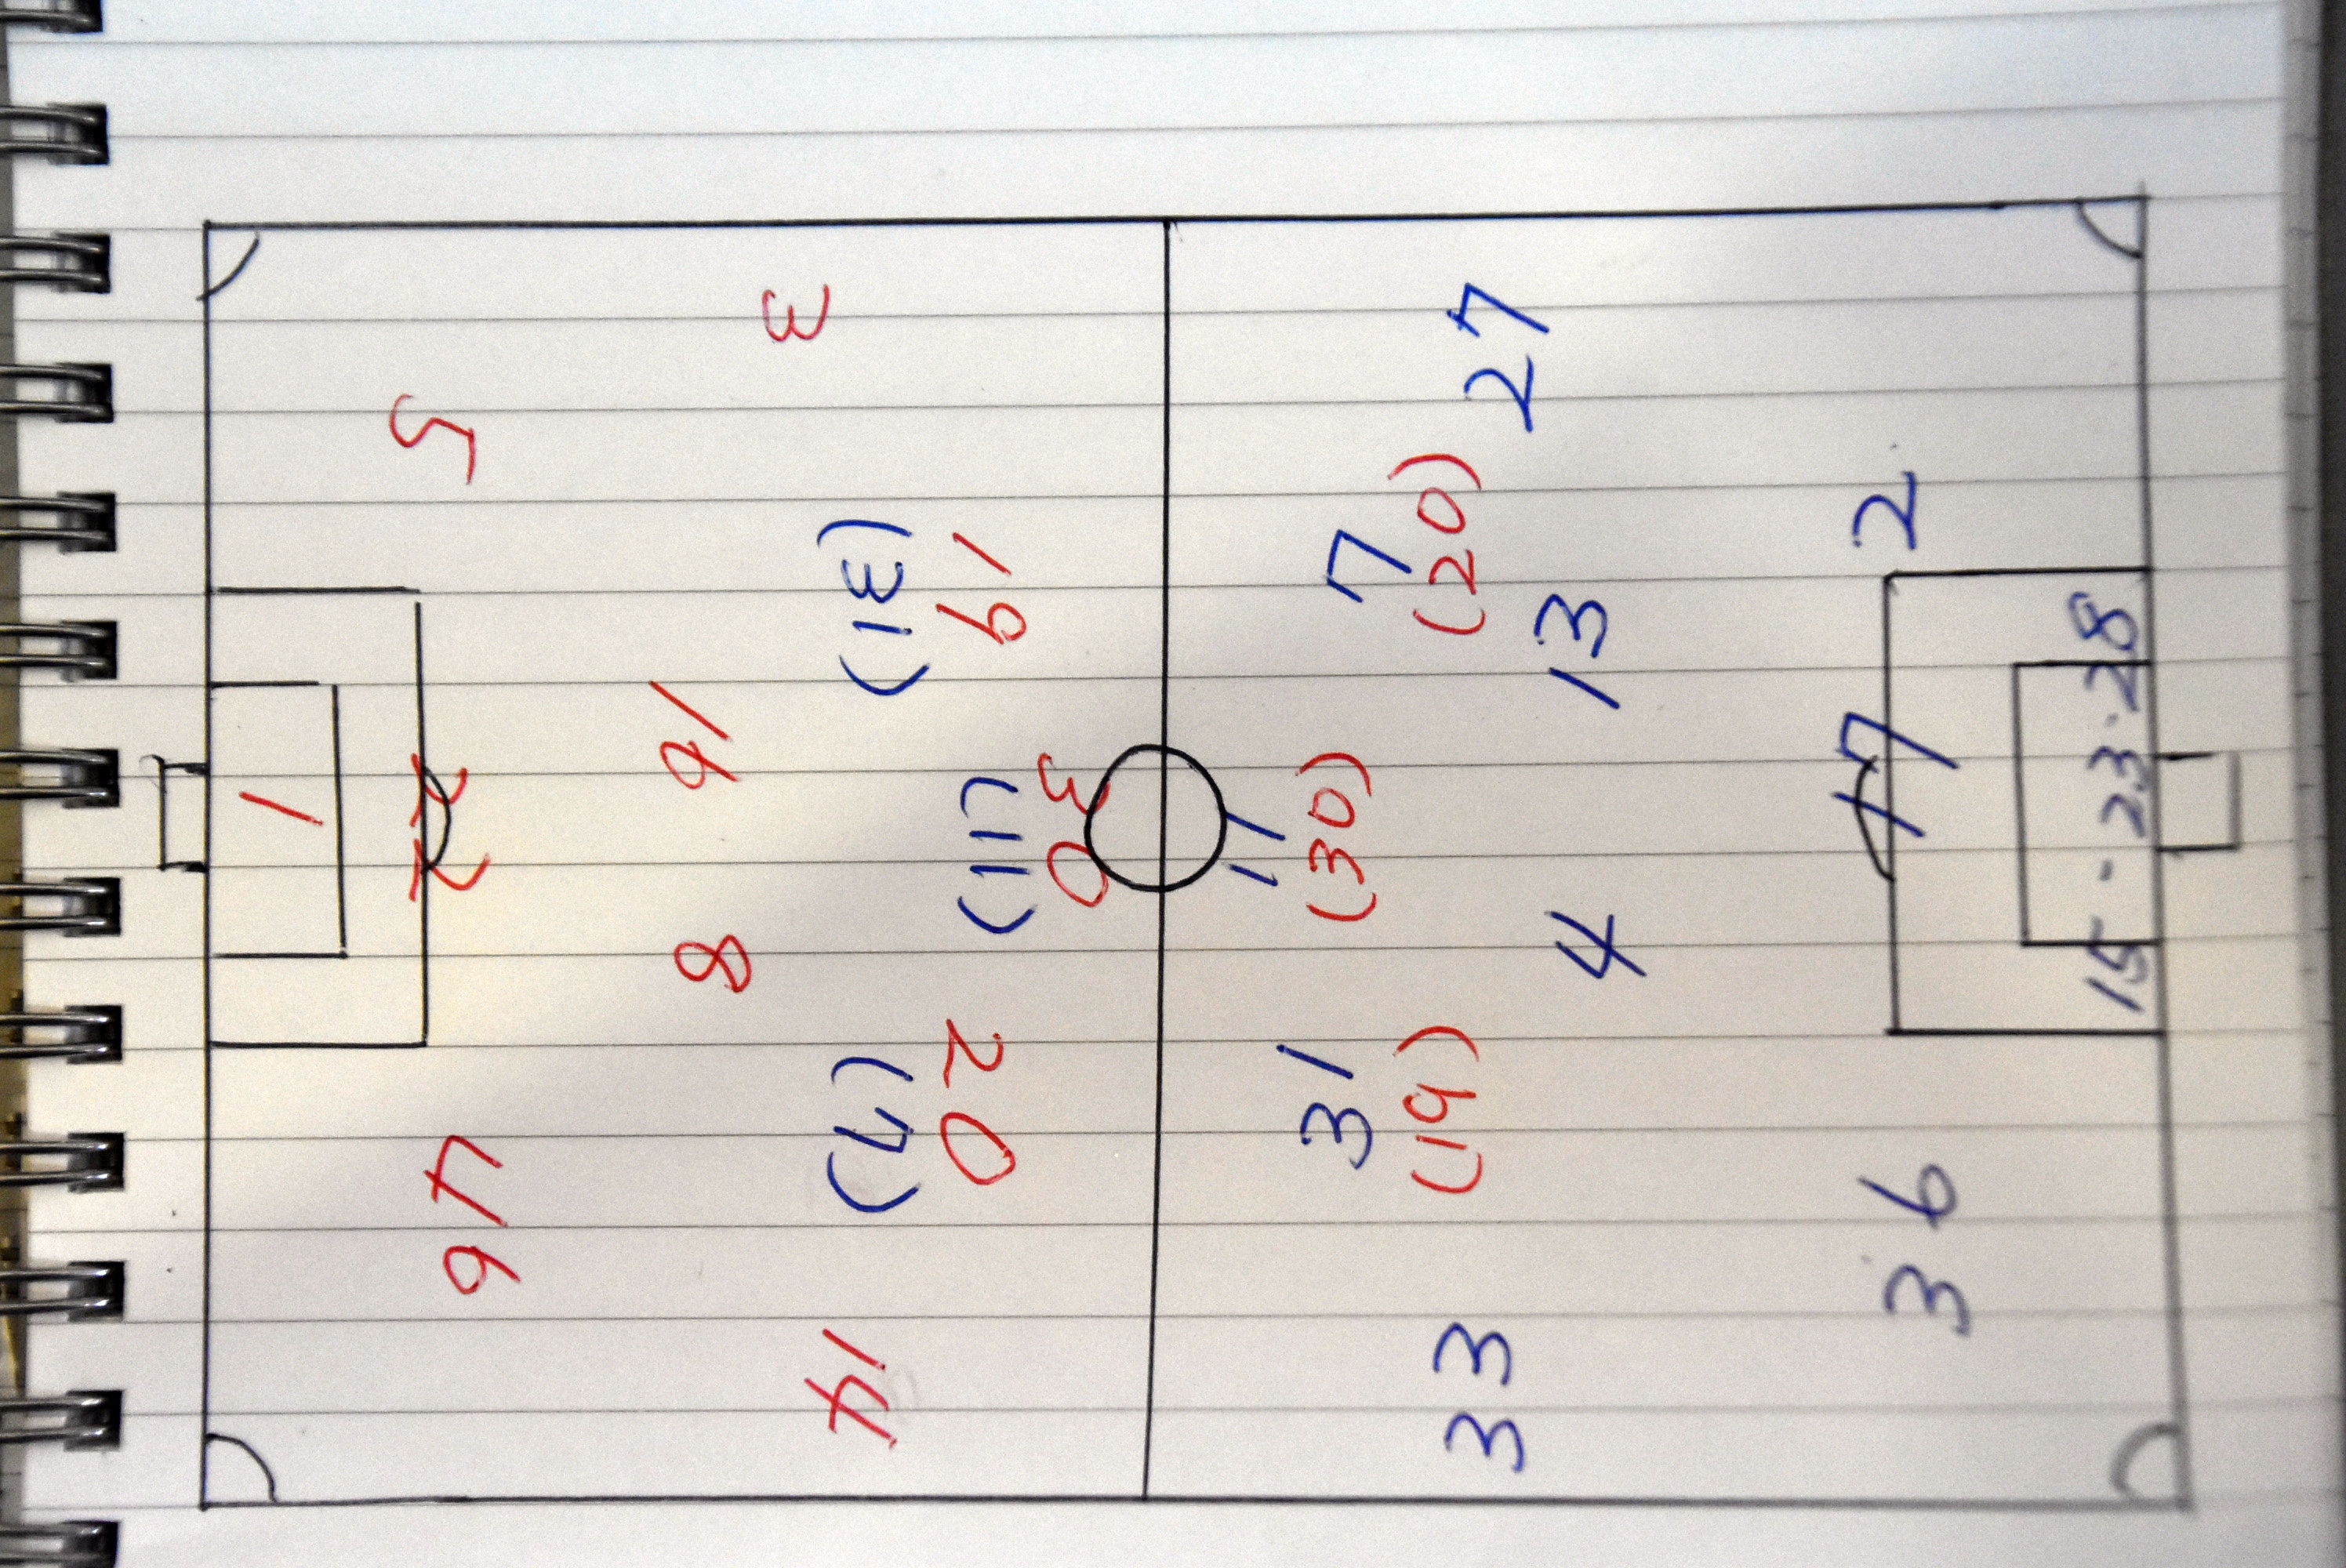 1
5
22
46
3
16
8
14
19
(31)
30
(11)
20
(7)
31
(19)
11
(30)
7
(20)
33
4
13
27
36
2
15-23-28